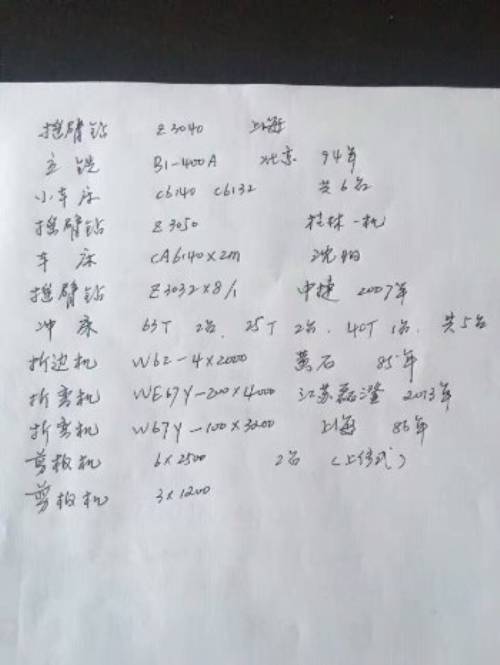 摇臂钻 Z3040 上海
立铣 B1-400A 北京 94年
小车床 C6140 C6132 共6台
摇臂钻 Z3050 桂林一机
车床 CA6140×2m 沈阳
摇臂钻 Z3032×8/1 中捷 2007年
冲床 63T 2台、25T 2台、40T 1台、共5台
折边机 W62-4×2000 黄石 85年
折弯机 WE67Y-200×4000 江苏 2013年
折弯机 W67Y-100×3200 上海 86年
剪板机 6×2500 2台 (上传式)
剪板机 3×1200